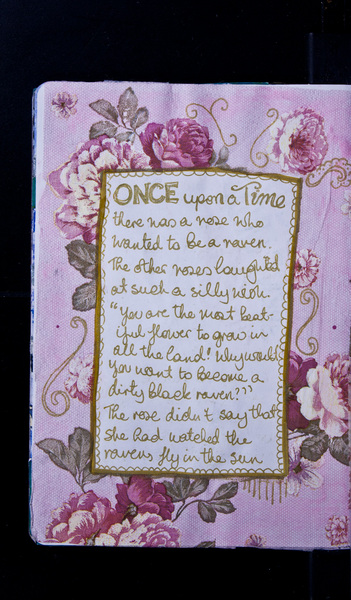 ONCE upon a Time
there was a rose who
wanted to be a raven.
The other roses laughted
at such a silly wish.
"You are the most beat-
iful flower to grow in
all the land! Why would
you want to become a
dirty black raven?"
The rose didn't say that
she had watched the
ravens fly in the sun